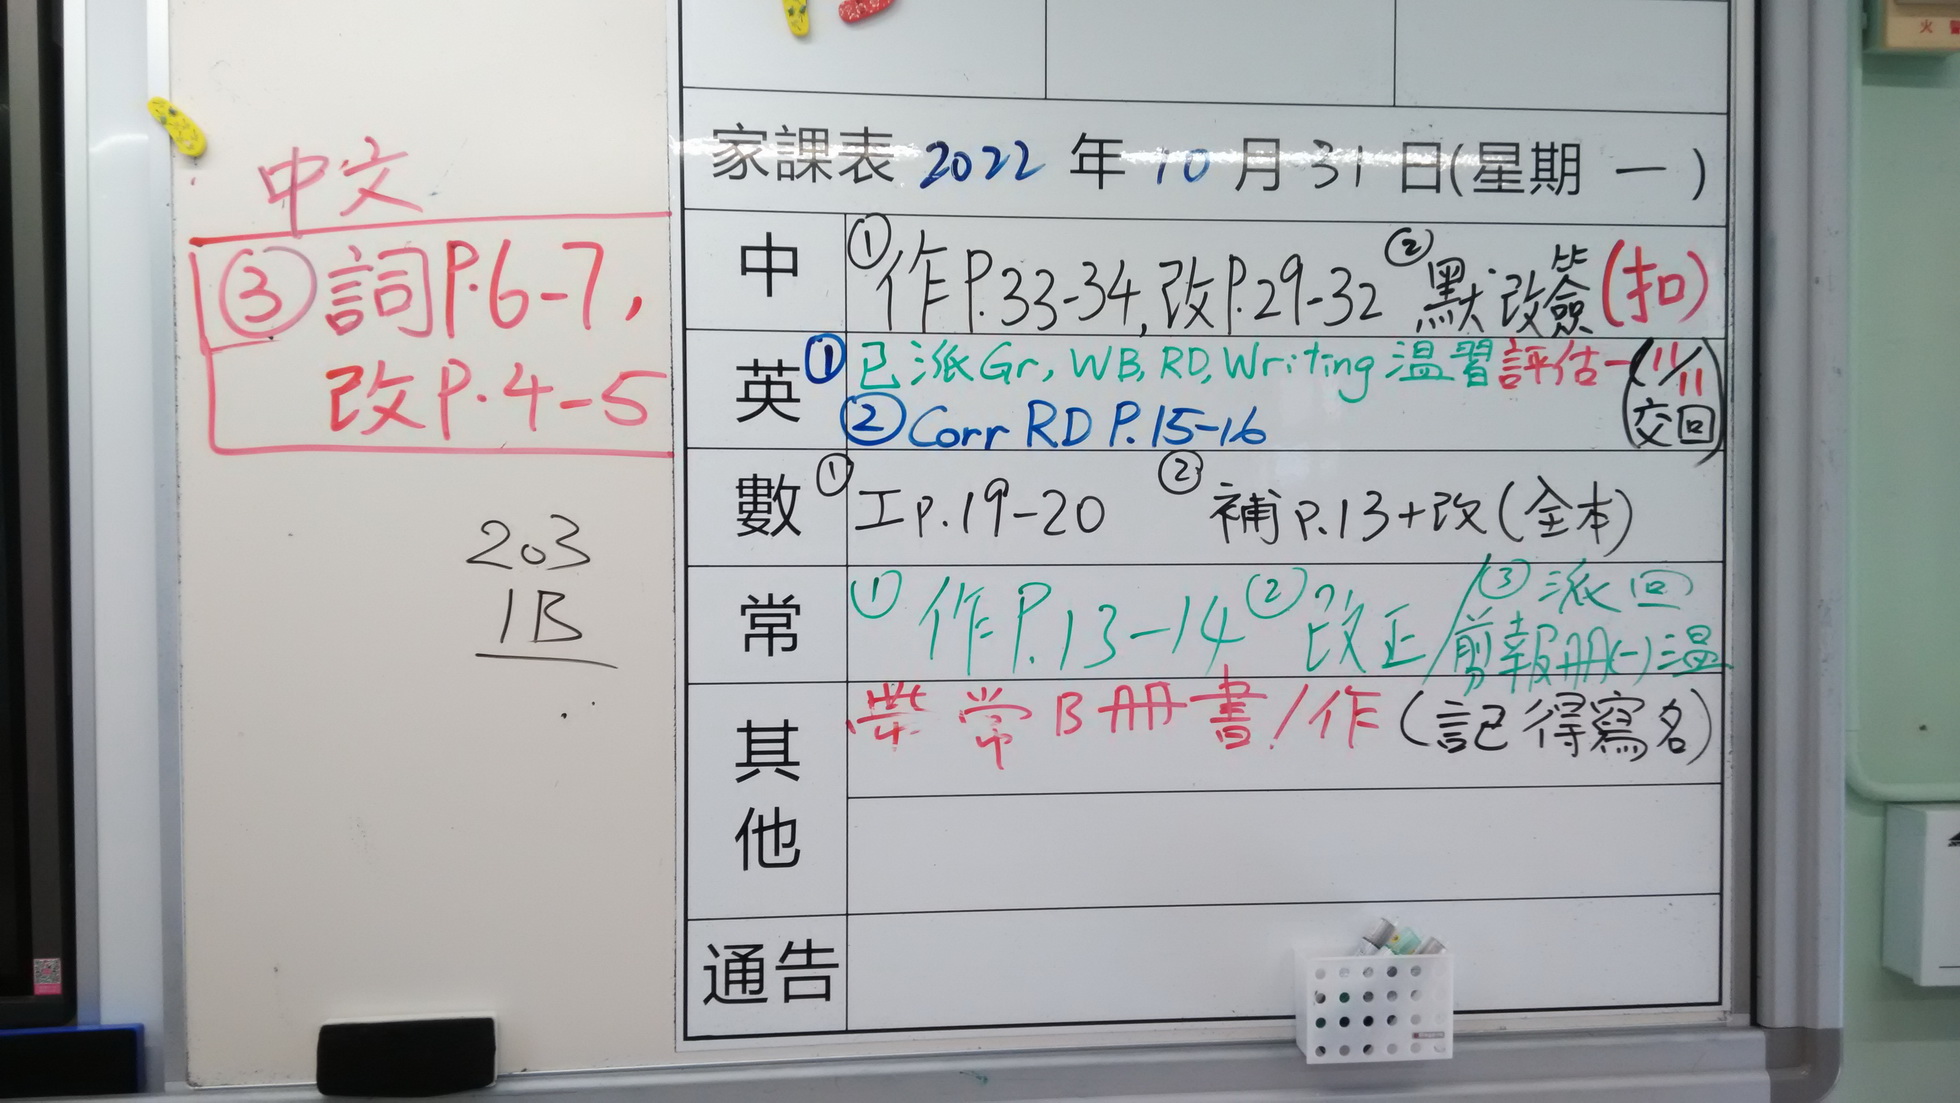 中文
③詞P.6-7,
改P.4-5
203
1B
家課表 2022 年 10 月 31 日(星期 一 )
中 ①作P.33-34,改P.29-32 ②默改簽(扣)
英 ①已派Gr, WB, RD, Writing 溫習評估一(11/11交回)
②Corr RD P.15-16
數 ①工p.19-20 ②補p.13+改(全本)
常 ①作P.13-14 ②改正/③派回剪報冊(一)溫
其他 帶常B冊書/作(記得寫名)
通告
火